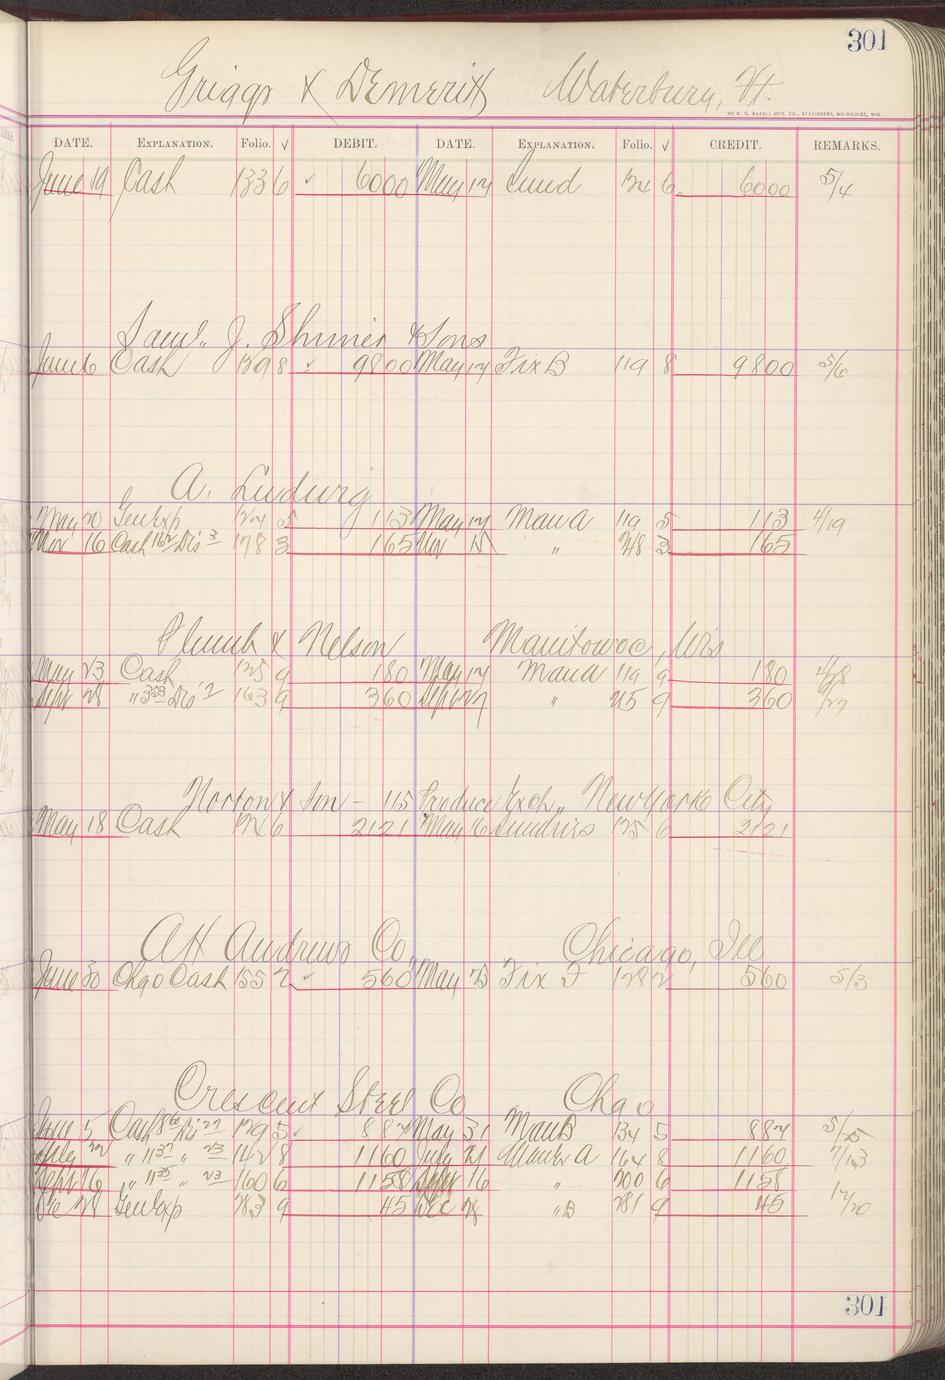 301
Griggs & Demeritt Waterbury, Vt.
THE H. G. RAZALL MFG. CO., STATIONERS, MILWAUKEE, WIS.
DATE. EXPLANATION. Folio. √ DEBIT. DATE. EXPLANATION. Folio. √ CREDIT. REMARKS.
June 19 Cash 133 6 ✓ 6000 May 17 124 6 6000 5/4
Saml. J. Shimer & Sons
June 6 Cash 129 8 ✓ 9800 May 17 Fix B 119 8 9800 5/6
A. Ludwig
May 20 Gen Exp 124 5 113 May 17 Man A 119 5 113 4/19
Nov 16 Cash 162 Dis 3 178 3 165 Nov 15 " 248 3 165
Plumb & Nelson Manitowoc, Wis
May 23 Cash 125 9 180 May 17 Man A 119 9 180 4/28
Sept 28 " 353 Dis 7 163 9 360 Sept 27 " 215 9 360 /27
Norton & Son - 115 Produce Exch., New York City
May 18 Cash 124 6 2121 May 16 Sundries 125 6 2121
A H Andrews Co, Chicago, Ill
June 30 Chgo Cash 155 2 ✓ 560 May 23 Fix F 128 2 560 5/3
Crescent Steel Co Chgo
June 5 Cash 860 Dis 27 129 5 887 May 31 Man B 134 5 887 5/15
July 22 " 1137 " 23 142 8 1160 July 21 Man A 164 8 1160 7/13
Sept 16 " 1135 " 23 160 6 1158 Sept 16 " 200 6 1158
Dec 28 Gen Exp 283 9 45 Dec 28 " B 281 9 45 12/20
301